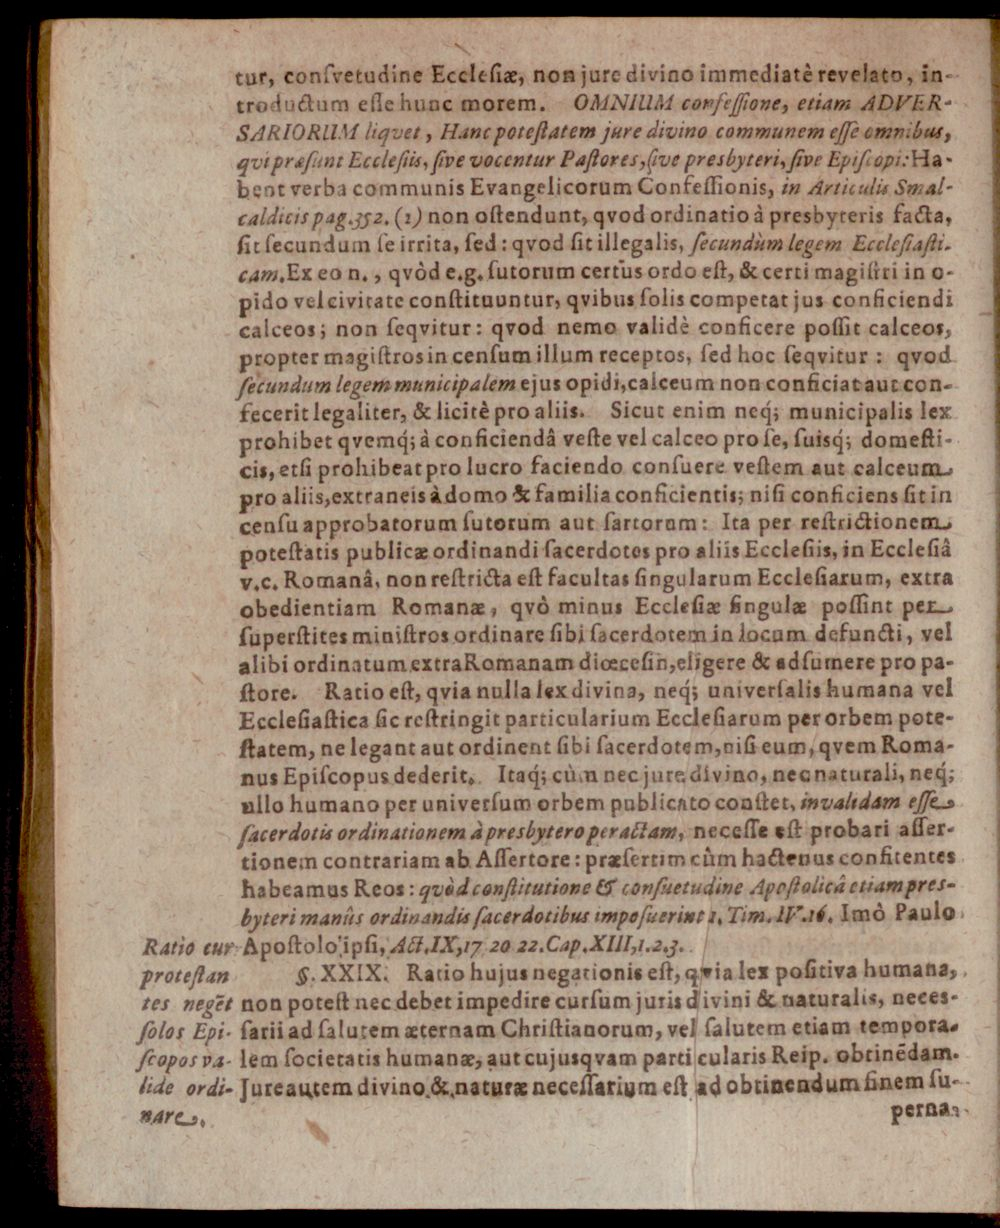 tur, conſvetudine Eccleſiæ, non jure divino immediatè revelato, in-
troductum eſſe hunc morem. OMNIUM confeſſione, etiam ADVER-
SARIORUM liqvet, Hanc poteſtatem jure divino communem eſſe omnibus,
qvi præſunt Eccleſiis, ſive vocentur Paſtores, ſive presbyteri, ſive Epiſcopi: Ha-
bent verba communis Evangelicorum Confeſſionis, in Articulis Smal-
caldicis pag.352. (2) non oſtendunt, qvod ordinatio à presbyteris facta,
ſit ſecundum ſe irrita, ſed: qvod ſit illegalis, ſecundùm legem Eccleſiaſti-
cam. Ex eo n., qvòd e.g. ſutorum certus ordo eſt, & certi magiſtri in o-
pido vel civitate conſtituuntur, qvibus ſolis competat jus conficiendi
calceos; non ſeqvitur: qvod nemo validè conficere poſſit calceos,
propter magiſtros in cenſum illum receptos, ſed hoc ſeqvitur: qvod
ſecundum legem municipalem ejus opidi, calceum non conficiat aut con-
fecerit legaliter, & licitè pro aliis. Sicut enim neq́; municipalis lex
prohibet qvemq́; à conficiendâ veſte vel calceo pro ſe, ſuisq́; domeſti-
cis, etſi prohibeat pro lucro faciendo conſuere veſtem aut calceum
pro aliis, extraneis à domo & familia conficientis; niſi conficiens ſit in
cenſu approbatorum ſutorum aut ſartorum: Ita per reſtrictionem
poteſtatis publicæ ordinandi ſacerdotes pro aliis Eccleſiis, in Eccleſiâ
v.c. Romanâ, non reſtricta eſt facultas ſingularum Eccleſiarum, extra
obedientiam Romanæ, qvò minus Eccleſiæ ſingulæ poſſint per
ſuperſtites miniſtros ordinare ſibi ſacerdotem in locum defuncti, vel
alibi ordinatum extra Romanam diœceſin, eligere & adſumere pro pa-
ſtore. Ratio eſt, qvia nulla lex divina, neq́; univerſalis humana vel
Eccleſiaſtica ſic reſtringit particularium Eccleſiarum per orbem pote-
ſtatem, ne legant aut ordinent ſibi ſacerdotem, niſi eum, qvem Roma-
nus Epiſcopus dederit. Itaq́; cùm nec jure divino, nec naturali, neq́;
ullo humano per univerſum orbem publicato conſtet, invalidam eſſe
ſacerdotis ordinationem à presbytero peractam, neceſſe eſt probari aſſer-
tionem contrariam ab Aſſertore: præſertim cùm hactenus confitentes
habeamus Reos: qvòd conſtitutione & conſuetudine Apoſtolicâ etiam pres-
byteri manûs ordinandis ſacerdotibus impoſuerint 1. Tim. IV. 16. Imò Paulo
Apoſtolo ipſi, Act. IX, 17 20 22. Cap. XIII, 1. 2. 3.
Ratio cur
proteſtan
tes negẽt
ſolos Epi-
ſcopos va-
lide ordi-
nare.
§. XXIX. Ratio hujus negationis eſt, qvia lex poſitiva humana,
non poteſt nec debet impedire curſum juris divini & naturalis, neces-
ſarii ad ſalutem æternam Chriſtianorum, vel ſalutem etiam tempora-
lem ſocietatis humanæ, aut cujusqvam particularis Reip. obtinẽdam.
Jure autem divino & naturæ neceſſarium eſt ad obtinendum finem ſu-
perna-